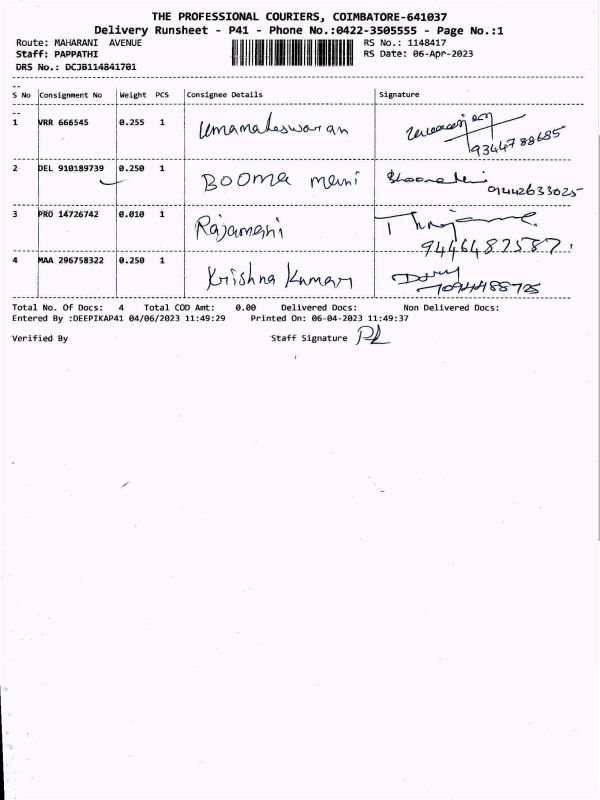 THE PROFESSIONAL COURIERS, COIMBATORE-641037
Delivery Runsheet - P41 - Phone No.:0422-3505555 - Page No.:1
Route: MAHARANI AVENUE RS No.: 1148417
Staff: PAPPATHI RS Date: 06-Apr-2023
DRS No.: DCJB114841701
S No Consignment No Weight PCS Consignee Details Signature
1 VRR 666545 0.255 1 Umamaheswaran
9344788685
2 DEL 910189739 0.250 1 Booma mani
3 PRO 14726742 0.010 1 Rajamani
4 MAA 296758322 0.250 1 Krishna Kumar
Total No. Of Docs: 4 Total COD Amt: 0.00 Delivered Docs: Non Delivered Docs:
Entered By :DEEPIKAP41 04/06/2023 11:49:29 Printed On: 06-04-2023 11:49:37
Verified By Staff Signature